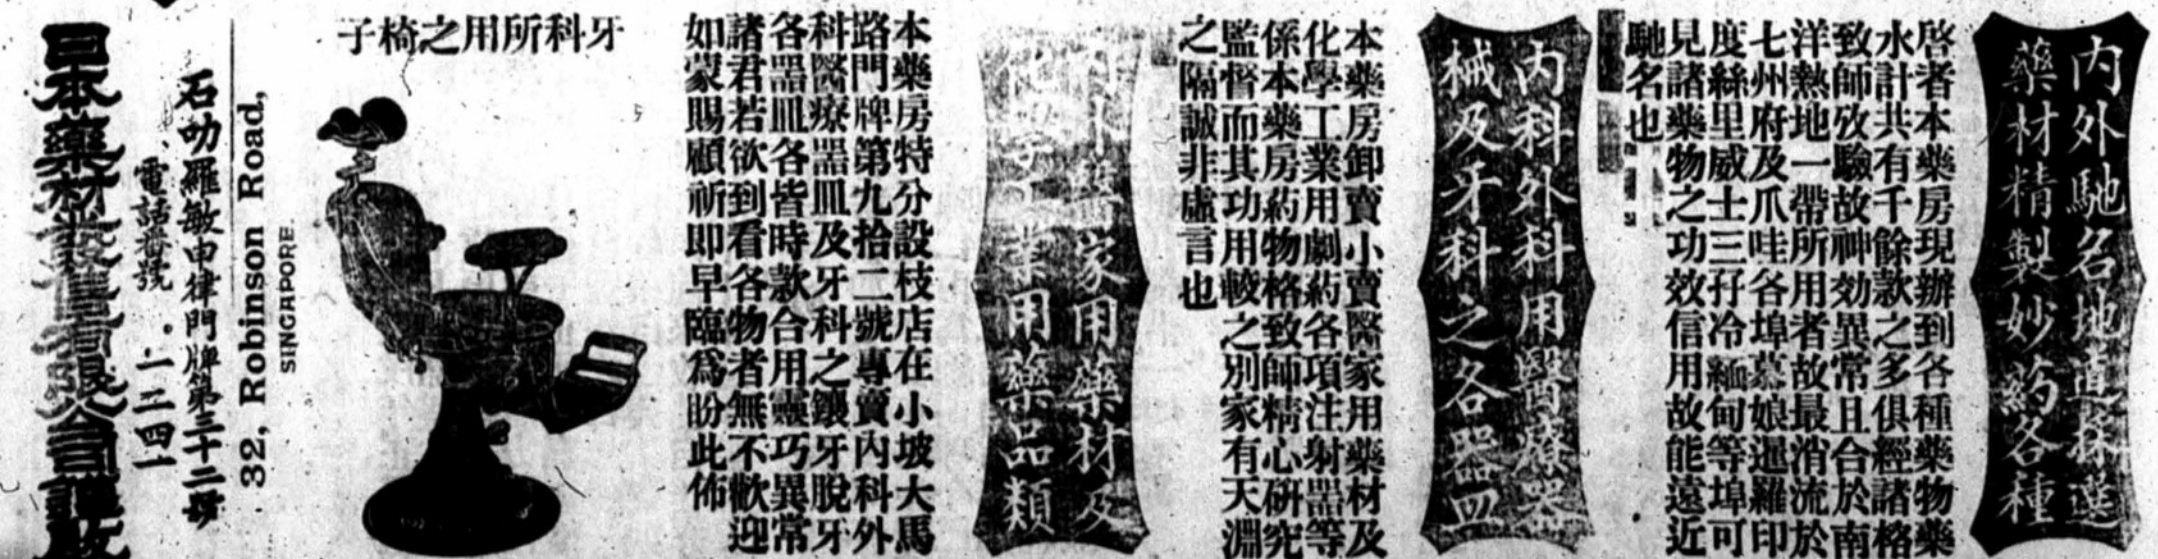 內外馳名地道採選
藥材精製妙葯各種
啓者本藥房現辦到各種藥物藥
水計共有千餘款之多俱經諸格
致師攷驗故神効異常且合於南
洋熱地一帶所用者故最消流於
七州府及爪哇各埠慕娘暹羅印
度絲里威士三孖冷緬甸等埠可
見諸藥物之功效信用故能遠近
馳名也
內科外科用醫療器
械及牙科之各器皿
本藥房卸賣小賣醫家用藥材及
化學工業用劇葯各項注射噐等
係本藥房葯物格致師精心研究
監督而其功用較之別家有天淵
之隔誠非虛言也
家用藥材及
化學工業用藥品類
本藥房特分設枝店在小坡大馬
路門牌第九拾二號專賣內科外
科醫療噐皿及牙科之鑲牙脫牙
各噐皿各皆時款合用靈巧異常
諸君若欲到看各物者無不歡迎
如蒙賜顧祈即早臨爲盼此佈
牙科所用之椅子
32, Robinson Road,
SINGAPORE
石叻羅敏申律門牌第三十二號
電話番號・一二四一
日本藥材發售有限公司謹啟